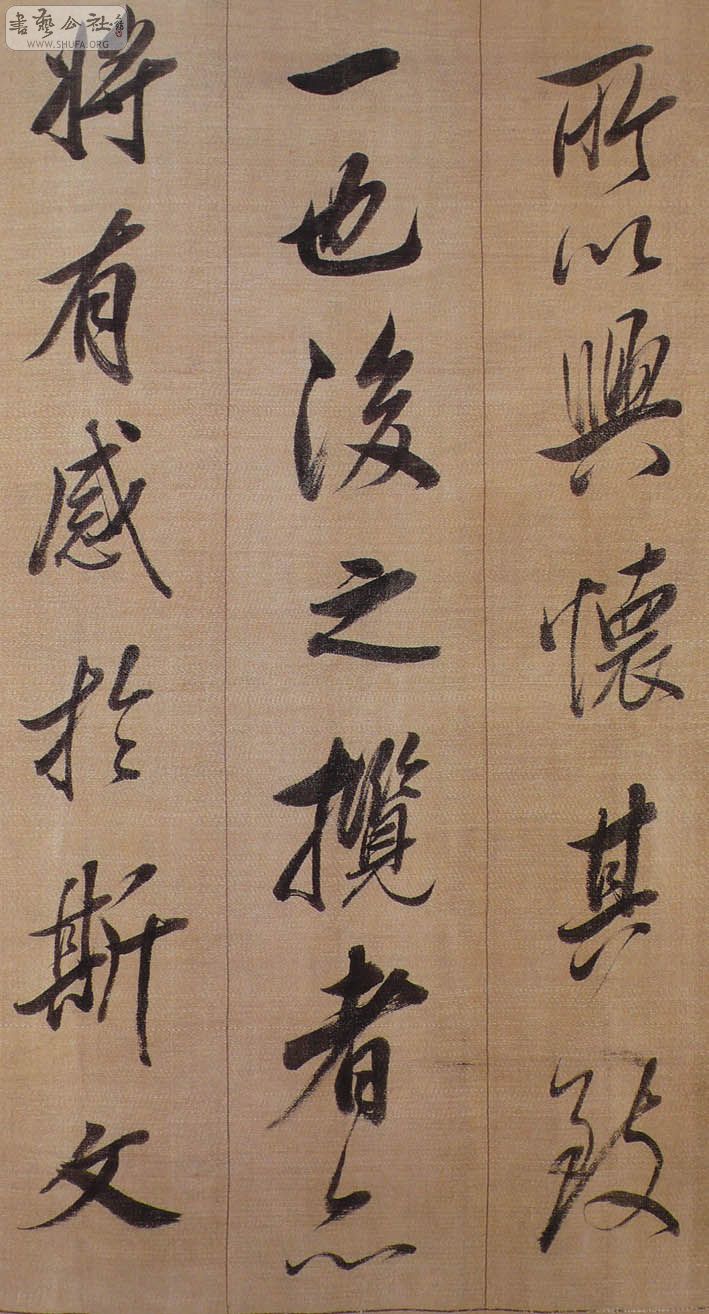 所以興懷其致
一也後之攬者亦
將有感於斯文
書藝公社
WWW.SHUFA.ORG